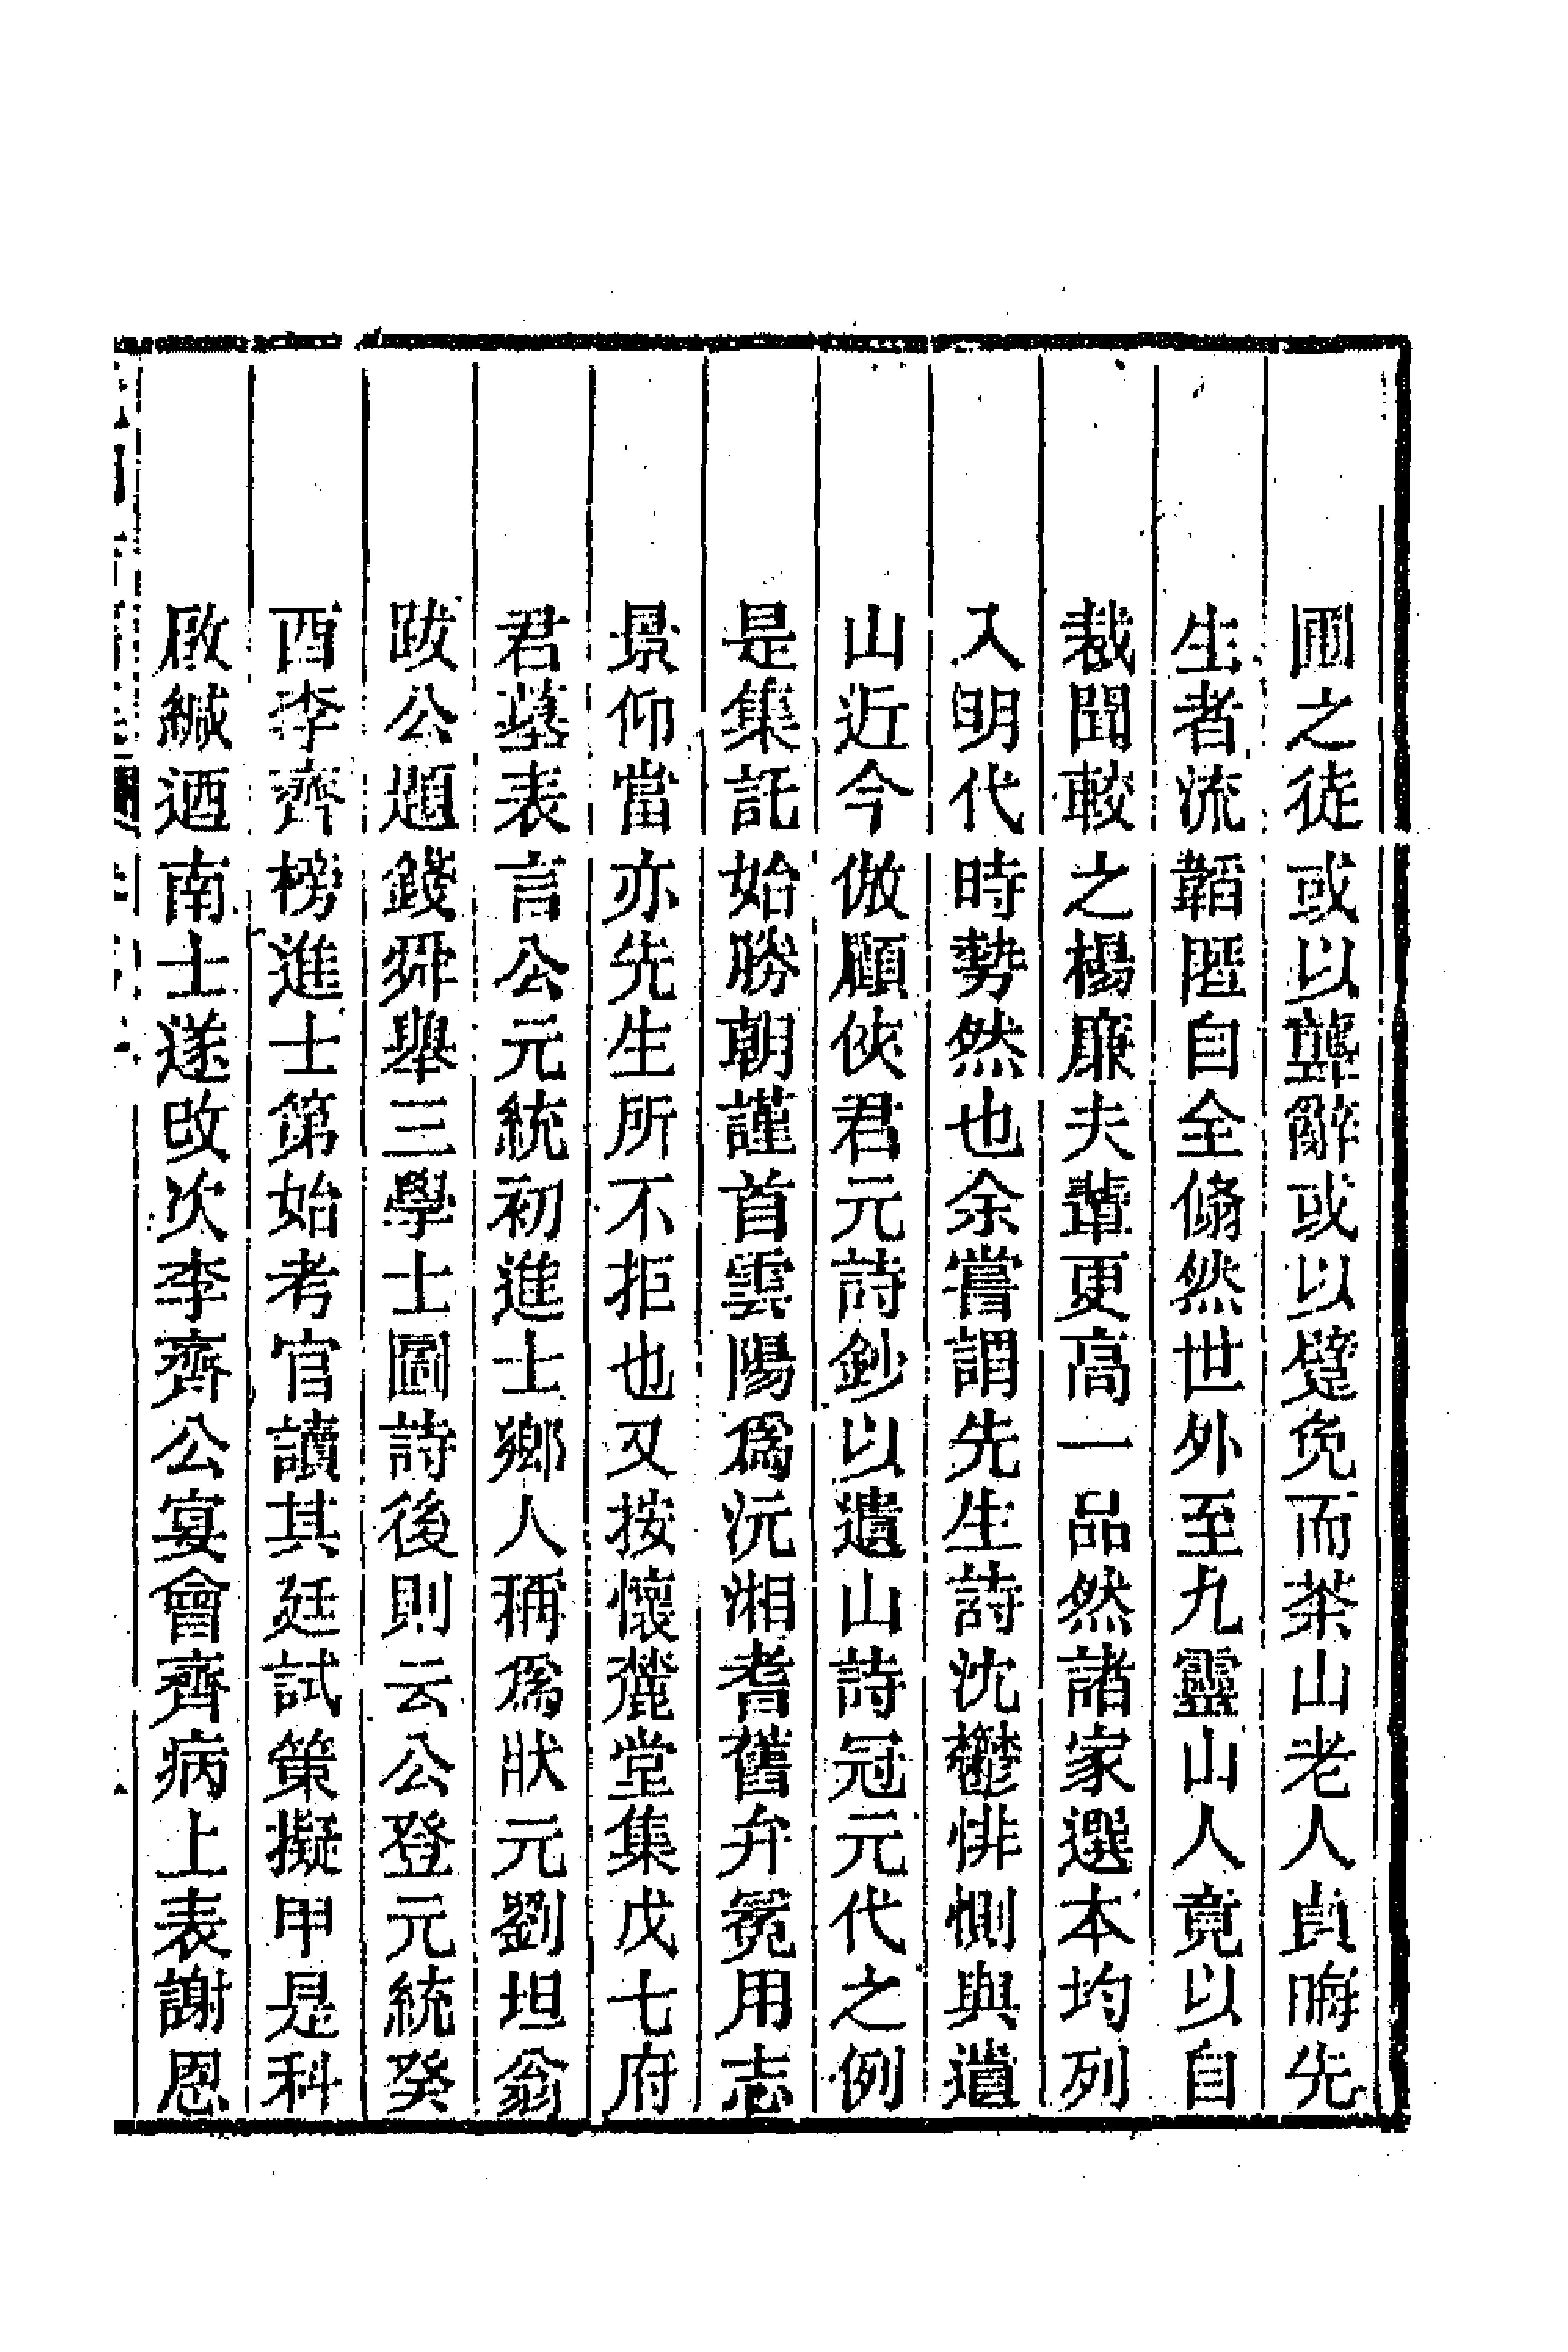 圃之徒或以聾辭或以躄免而茶山老人貞晦先
生者流韜匿自全翛然世外至九靈山人竟以自
裁聞較之楊廉夫輩更高一品然諸家選本均列
入明代時勢然也余嘗謂先生詩沈鬱悱惻與遺
山近今倣顧俠君元詩鈔以遺山詩冠元代之例
是集託始勝朝謹首雲陽爲沅湘耆舊弁冕用志
景仰當亦先生所不拒也又按懷麓堂集戊七府
君墓表言公元統初進士鄉人稱爲狀元劉坦翁
跋公題錢舜舉三學士圖詩後則云公登元統癸
酉李齊榜進士第始考官讀其廷試策擬甲是科
啟緘迺南士遂改次李齊公宴會齊病上表謝恩